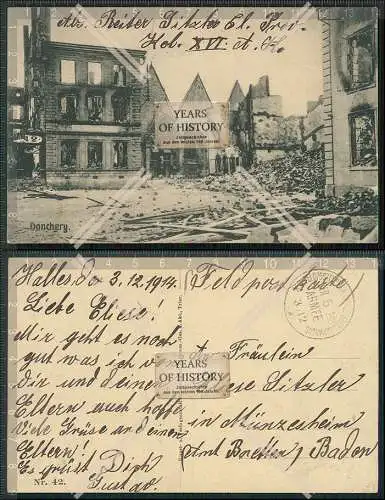 Abs. Reiter Sitzler El. Prov.
Kol. XVI. A. K.
YEARS
OF HISTORY
Zeitgeschichte
aus den letzten 150 Jahren
Donchery.
Halles, den 3.12.1914.
Feldpostkarte
Liebe Eliese!
Mir geht es noch
gut was ich von
Dir und deinen
Eltern auch hoffe
Viele Grüse and einen
Eltern!
Es grüst Dich
Gustav.
Nr. 42.
Fräulein
Sitzler
in Münzesheim
Amt Bretten, Baden
YEARS
OF HISTORY
Zeitgeschichte
aus den letzten 150 Jahren